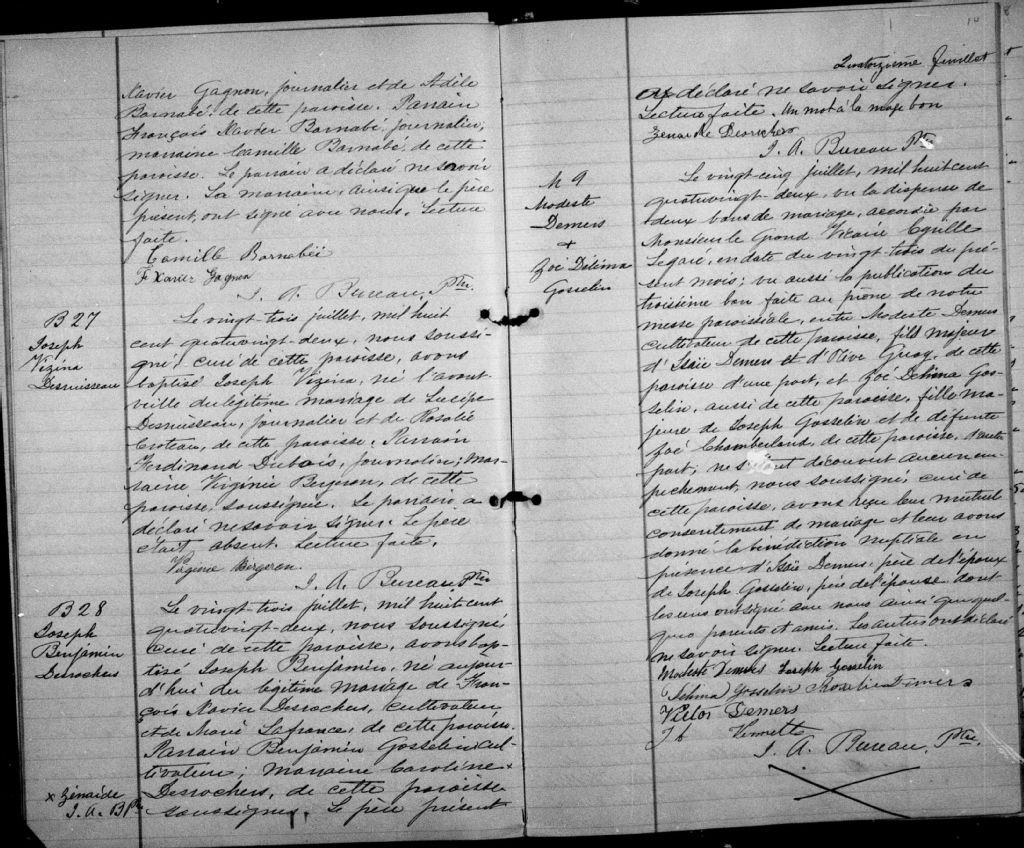 Xavier Gagnon, journalier et de Adèle
Barnabé, de cette paroisse. Parrain
François Xavier Barnabé, journalier,
marraine Camille Barnabé, de cette
paroisse. Le parrain a déclaré ne savoir
signer. La marraine, ainsi que le père
présent, ont signé avec nous. Lecture
faite.
Camille Barnabéi
F Xavier Gagnon
J. A. Bureau, Ptre.
B 27
Joseph
Vizina
Desruisseau
Le vingt-trois juillet, mil huit
cent quatrevingt-deux, nous soussi-
gné curé de cette paroisse, avons
baptisé Joseph Vizina, né l'avant
veille du légitime mariage de
Desruisseau, journalier et de Rosalie
Croteau, de cette paroisse. Parrain
Ferdinand Dubois, journalier; Mar-
raine Virginie Bergeron, de cette
paroisse, soussignée. Le parrain a
déclaré ne savoir signer. Le père
était absent. Lecture faite.
Virginie Bergeron.
J. A. Bureau, Ptre
B 28
Joseph
Benjamin
Desrochers
Le vingt-trois juillet, mil huit cent
quatrevingt-deux, nous soussigné,
curé de cette paroisse, avons bap-
tisé Joseph Benjamin, né aujour-
d'hui du légitime mariage de Fran-
çois Xavier Desrochers, cultivateur
et de Marie Lafrance, de cette paroisse.
Parrain Benjamin Gosselin cul-
tivateur; marraine Caroline x
Desrochers, de cette paroisse
soussignés. Le père présent
x Zénaïde
J. A. B Ptre
14
Quatorzième feuillet
a déclaré ne savoir signer.
Lecture faite. Un mot à la marge bon
Zenaide Desrochers
J. A. Bureau Ptre
M 9
Modeste
Demers
+
Zoé Délima
Gosselin
Le vingt-cinq juillet, mil huit cent
quatrevingt-deux, vu la dispense de
deux bans de mariage, accordée par
Monsieur le Grand Vicaire Cyrille
Légaré, en date du vingt-trois du pré-
sent mois; vu aussi la publication du
troisième ban faite au prône de notre
messe paroissiale, entre Modeste Demers
cultivateur de cette paroisse, fils majeur
d'Isaïe Demers et d'Olive Guay, de cette
paroisse d'une part, et Zoé Délima Gos-
selin, aussi de cette paroisse, fille ma-
jeure de Joseph Gosselin et de défunte
Zoé Chamberland, de cette paroisse, d'autre
part; ne s'étant découvert aucun em-
pêchement, nous soussigné, curé de
cette paroisse, avons reçu leur mutuel
consentement de mariage et leur avons
donné la bénédiction nuptiale en
présence d'Isaïe Demers, père de l'époux
de Joseph Gosselin, père de l'épouse dont
les uns ont signé avec nous ainsi que quel-
ques parents et amis. Les autres ont déclaré
ne savoir signer. Lecture faite.
Modeste Demers Joseph Gosselin
Délima Gosselin Rosalie Demers
Victor Demers
J. A. Bureau, Ptre.